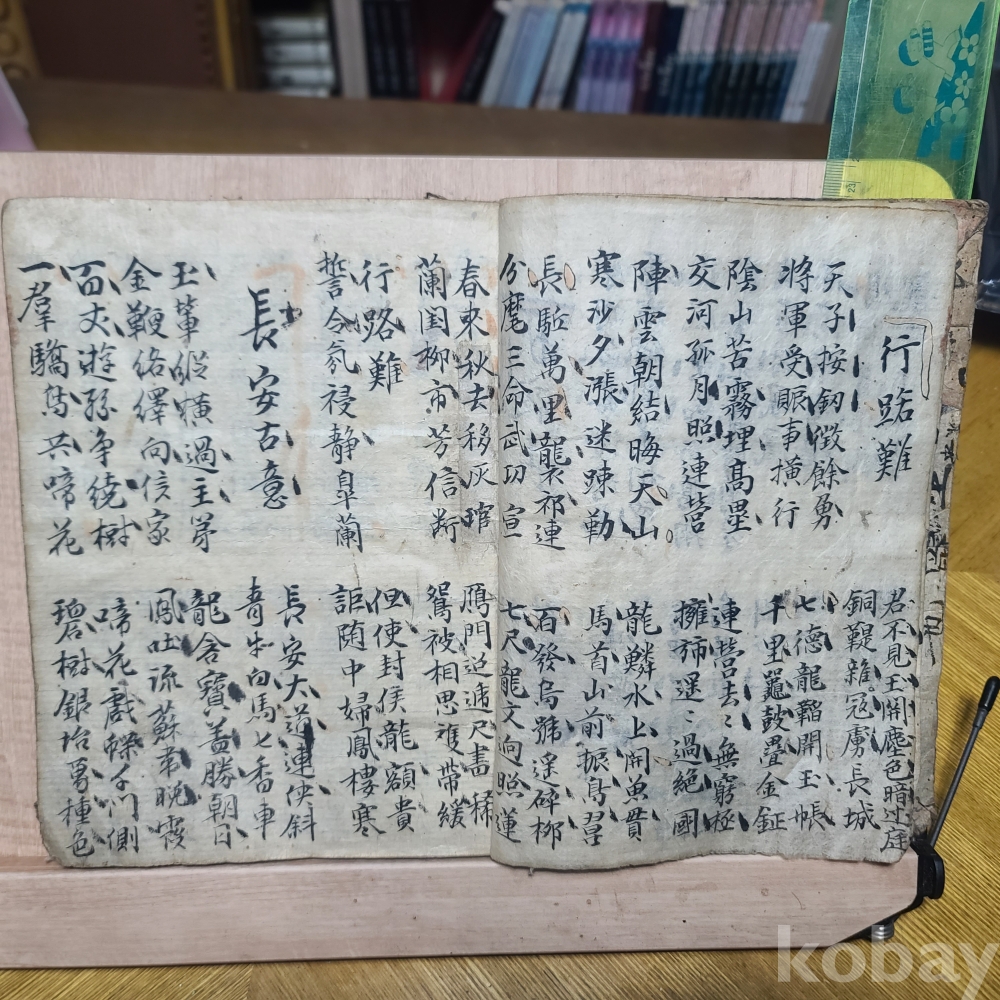 行路難
君不見玉關塵色暗边庭
銅鞮雜寇虜長城
天子按釖徴餘勇
將軍受賑事橫行
七德龍韜開玉帳
千里鼉鼓疊金鉦
陰山苦霧埋高壘
交河孤月照連營
連營去〻無窮極
擁旆遥〻過絕國
陣雲朝結晦天山
寒沙夕漲迷踈勒
龍鱗水上開魚貫
馬首山前振鳥翼
長駈萬里讋祁連
分麾三命武功宣
百發烏號遥碎柳
七尺龍文向照蓮
春來秋去移灰琯
蘭閨柳市芳信断
鴈門迢遞尺書稀
鴛被相思䨇帶緩
行路難
誓令氛祲静皐蘭
但使封侯龍額貴
詎随中婦鳳樓寒
長安古意
長安大道連俠斜
青牛白馬七香車
玉輦縱橫過主第
金鞭絡繹向侯家
龍含寶盖勝朝日
鳳吐流蘇帶晩霞
百丈遊絲争繞樹
一羣驕鳥共啼花
啼花戯蝶千門側
碧樹銀坮萬種色
kobay